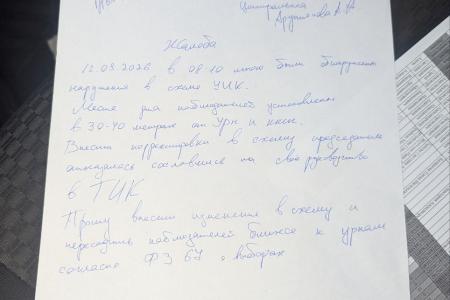 Центральная
Арутюнова А. А.
Жалоба
12.03.2026 в 08-10 мною были обнаружены
нарушения в схеме УИК.
Место для наблюдателей установлено
в 30-40 метрах от урн и
Внести корректировки в схему председатель
отказалась сославшись на своё руководство
в ТИК
Прошу внести изменения в схему и
пересадить наблюдателей ближе к урнам
согласно ФЗ 67 о выборах